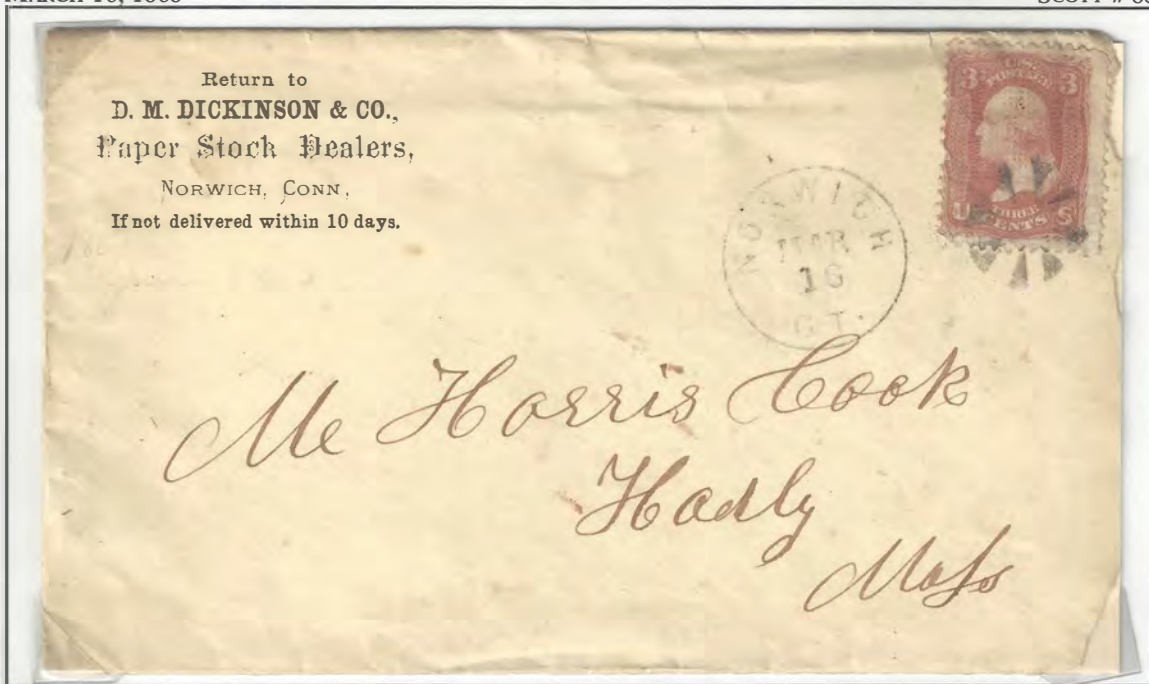 Return to
D. M. DICKINSON & CO.,
Paper Stock Dealers,
NORWICH, CONN,
If not delivered within 10 days.
3 U.S. POSTAGE 3
U THREE CENTS S
NORWICH
MAR
16
CT.
Mr Harris Cook
Hadly
Mass